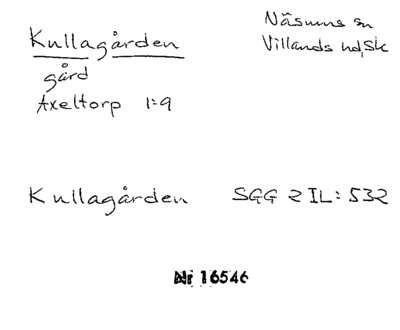 Kullagården
Näsums sn
Villands hd, Sk
gård
Axeltorp 1:9
Kullagården SGG 2 IL: 532
Nr 16546